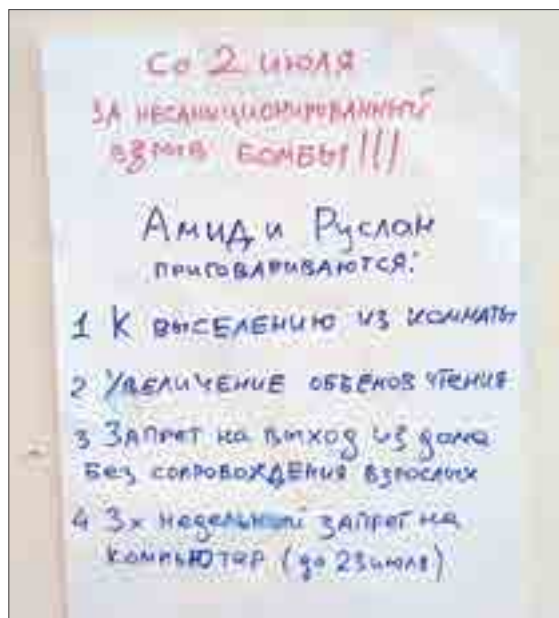 Со 2 июля
ЗА НЕСАНКЦИОНИРОВАННЫЙ
ВЗРЫВ БОМБЫ!!!
Амид и Руслан
ПРИГОВАРИВАЮТСЯ:
1 К ВЫСЕЛЕНИЮ ИЗ КОМНАТЫ
2 УВЕЛИЧЕНИЕ ОБЪЁМОВ ЧТЕНИЯ
3 ЗАПРЕТ на выход из дома
Без сопровождения взрослых
4 3х недельный ЗАПРЕТ на
КОМПЬЮТЕР (до 23 июля)